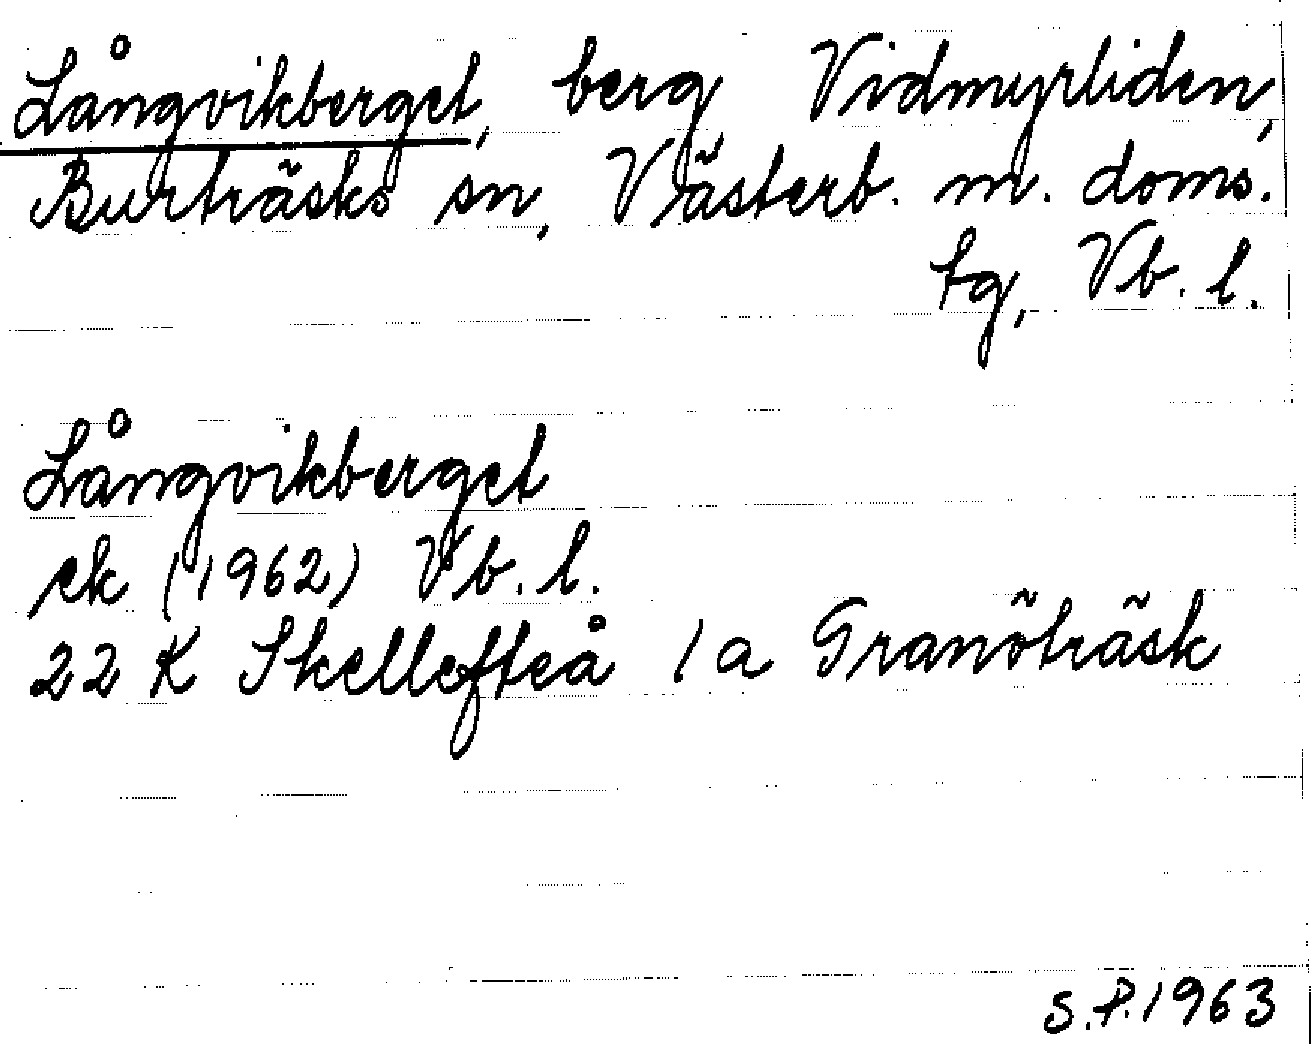 Långvikberget, berg, Vidmyrliden,
Burträsks sn, Västerb. m. doms.
tg, Vb. l.
Långvikberget
ek (1962) Vb. l.
22 K Skellefteå 1 a Granöträsk
S.P. 1963